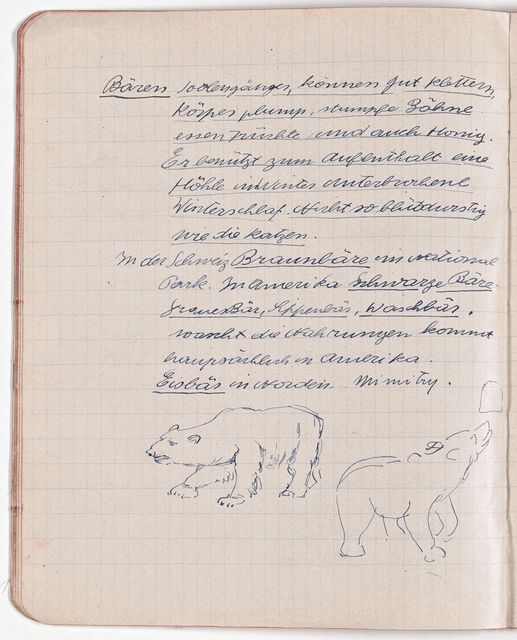 Bären Sohlengänger, können gut klettern,
Körper plump, stumpfe Zähne
essen Früchte und auch Honig.
Er benützt zum Aufenthalt eine
Höhle im Winter unterbrochene
Winterschlaf. Nicht so blutdurstig
wie die Katzen.
In der Schweiz Braunbäre im National
Park. In Amerika Schwarze Bäre.
Grauer Bär, Lippenbär, Waschbär,
wascht die Nahrungen kommt
haupsächlich in Amerika.
Eisbär in Norden.